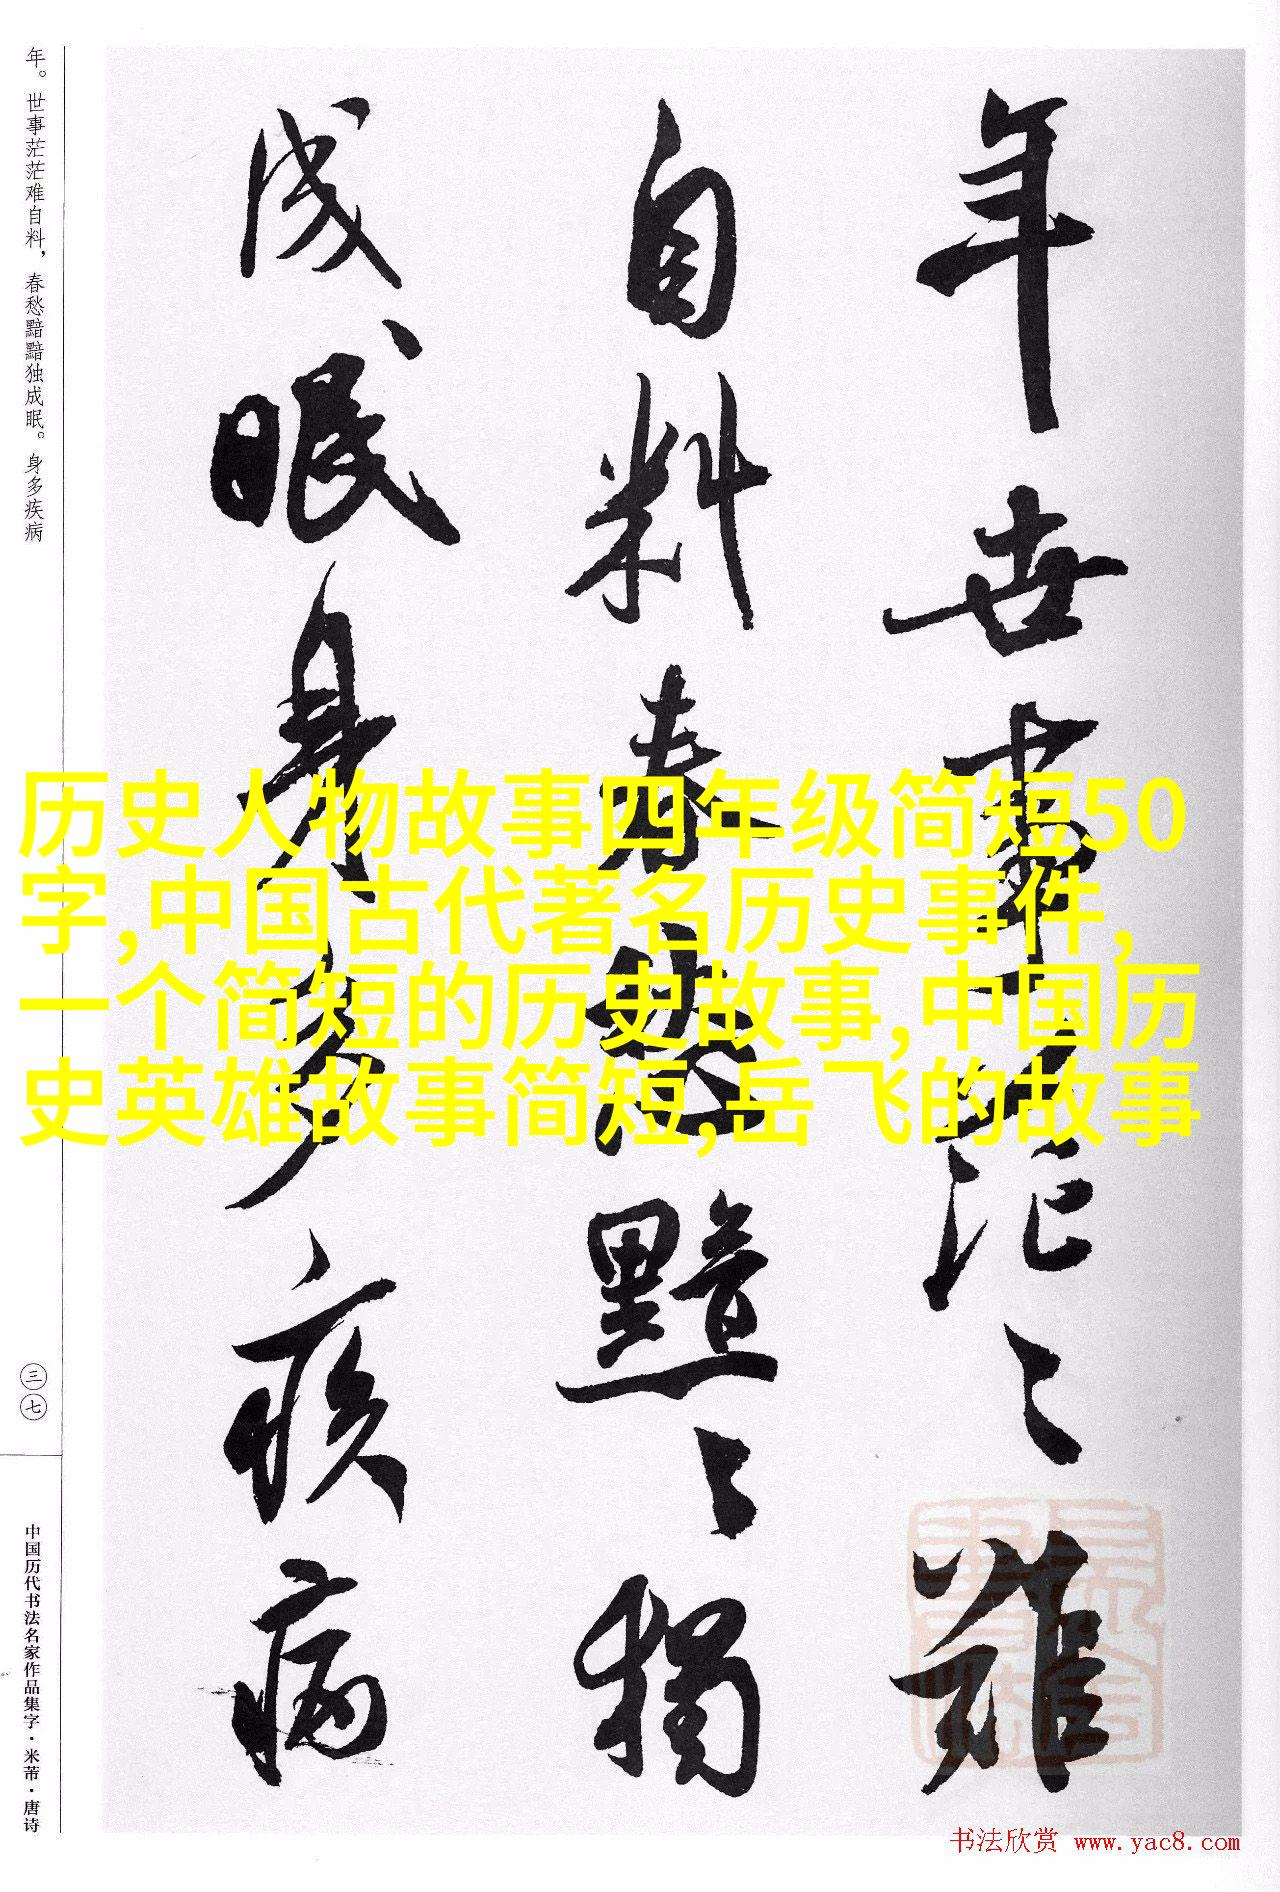 年世事茫〻難
自料春愁黯〻獨
成眠身多疾病
年。世事茫茫难自料，春愁黯黯独成眠。身多疾病
三七
中国历代书法名家作品集字·米芾·唐诗
历史人物故事四年级简短50
字,中国古代著名历史事件,
一个简短的历史故事,中国历
史英雄故事简短,岳飞的故事
书法欣赏 www.yac8.com